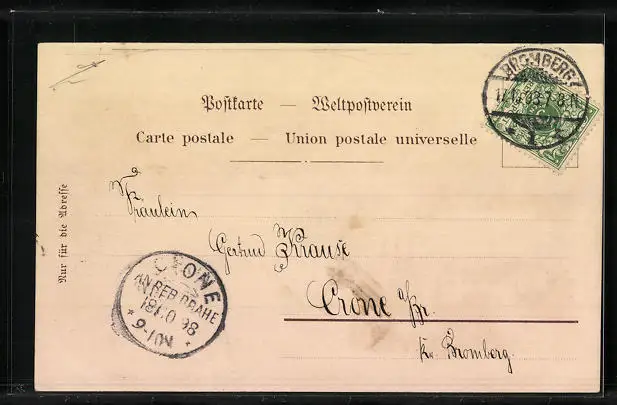 BROMBERG
Postkarte — Weltpostverein
Carte postale — Union postale universelle
Nur für die Adresse
Fräulein
Gertrud Krause
Crone a/Br.
Kr. Bromberg.
CRONE
AN DER BRAHE
9-10N